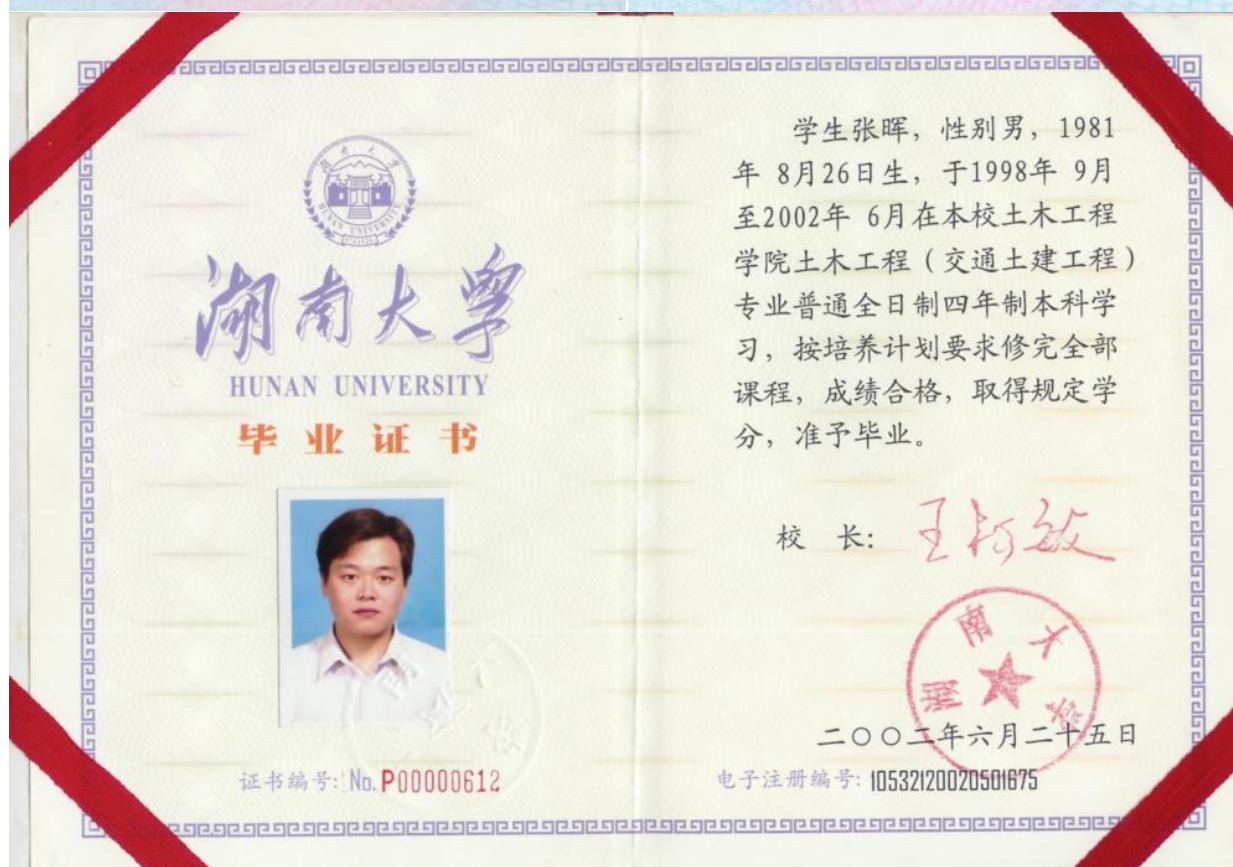 湖南大学
HUNAN UNIVERSITY
湖南大学
HUNAN UNIVERSITY
毕业证书
证书编号: No. P00000612
学生张晖，性别男，1981
年 8月26日生，于1998年 9月
至2002年 6月在本校土木工程
学院土木工程（交通土建工程）
专业普通全日制四年制本科学
习，按培养计划要求修完全部
课程，成绩合格，取得规定学
分，准予毕业。
校 长: 王柯敏
湖南大学
二〇〇二年六月二十五日
电子注册编号: 105321200205016​75